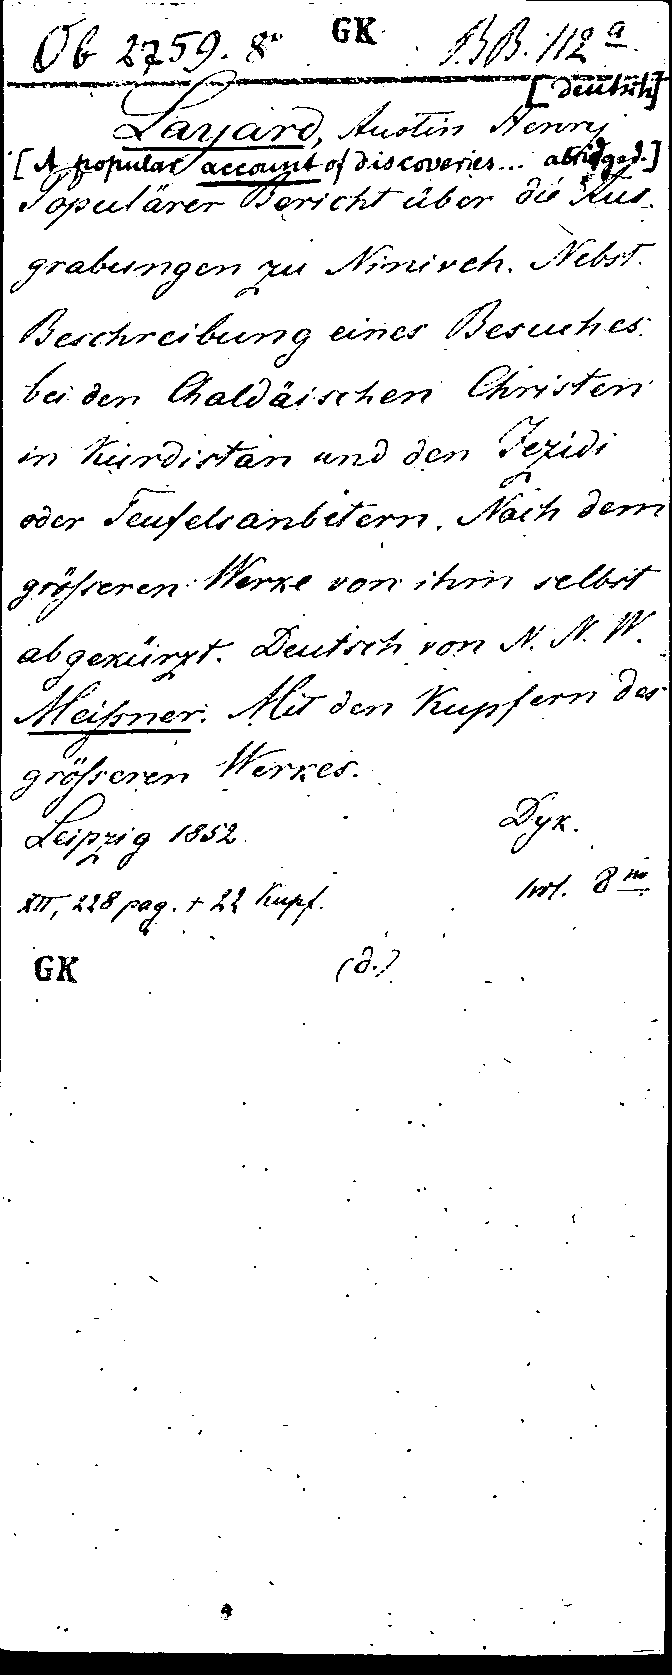 Ob 2759. 8° GK BB. 112 a
[deutsch]
Layard, Austin Henry
[A popular account of discoveries... abridged.]
Populärer Bericht über die Aus-
grabungen zu Niniveh. Nebst
Beschreibung eines Besuches
bei den Chaldäischen Christen
in Kurdistan und den Jezidi
oder Teufelsanbetern. Nach dem
größeren Werke von ihm selbst
abgekürzt. Deutsch von N. N. W.
Meißner. Mit den Kupfern des
größeren Werkes.
Leipzig 1852 Dyk.
XII, 228 pag. + 22 Kupf. 8
GK (d.)